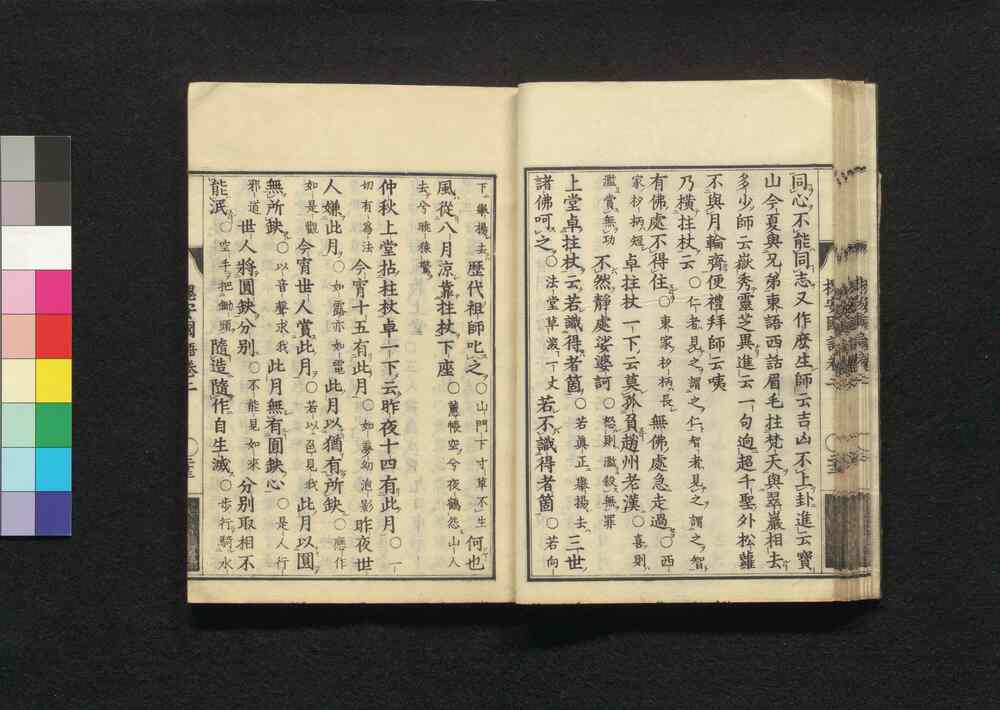 同心不能同志又作麽生師云吉凶不上卦進云寶
山今夏與兄弟東語西話眉毛拄梵天與翠巖相去
多少師云嶽秀靈芝異進云一句逈超千聖外松蘿
不與月輪齊便禮拜師云咦
乃橫拄杖云○仁者見之謂之仁智者見之謂之智
有佛處不得住○東家杓柄長無佛處急走過○西
家杓柄短卓拄杖一下云莫孤負趙州老漢○喜則
濫賞無功不然靜處娑婆訶○怒則濫殺無罪
上堂卓拄杖云若識得者箇○若眞正擧揚去三世
諸佛呵之○法堂草深一丈若不識得者箇○若向
下擧揚去歷代祖師叱之○山門下寸草不生何也
風從八月涼靠拄杖下座○蕙帳空兮夜鶴怨山人
去兮曉猿驚
仲秋上堂拈拄杖卓一下云昨夜十四有此月○一
切有爲法今宵十五有此月○如夢幻泡影昨夜世
人嫌此月○如露亦如電此月以猶有所缺○應作
如是觀今宵世人賞此月○若以色見我此月以圓
無所缺○以音聲求我此月無有圓缺心○是人行
邪道世人將圓缺分別○不能見如來分別取相不
能泯○空手把鋤頭隨造隨作自生滅○步行騎水
國語卷二